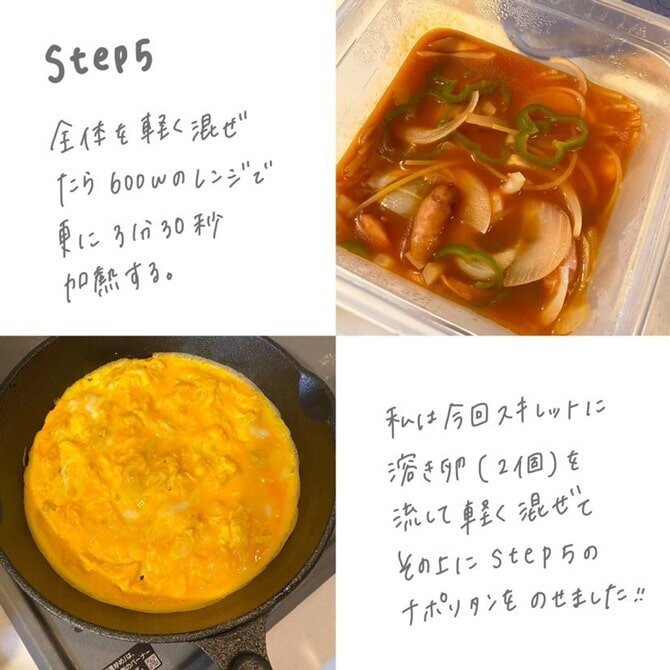 Step5
全体を軽く混ぜ
たら600wのレンジで
更に3分30秒
加熱する。
私は今回スキレットに
溶き卵(2個)を
流して軽く混ぜて
その上にstep5の
ナポリタンをのせました!!